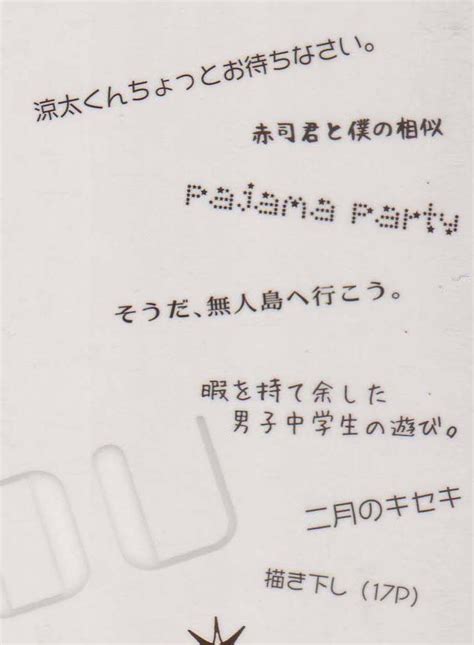 涼太くんちょっとお待ちなさい。
赤司君と僕の相似
pajama party
そうだ、無人島へ行こう。
暇を持て余した
男子中学生の遊び。
二月のキセキ
描き下し(17P)